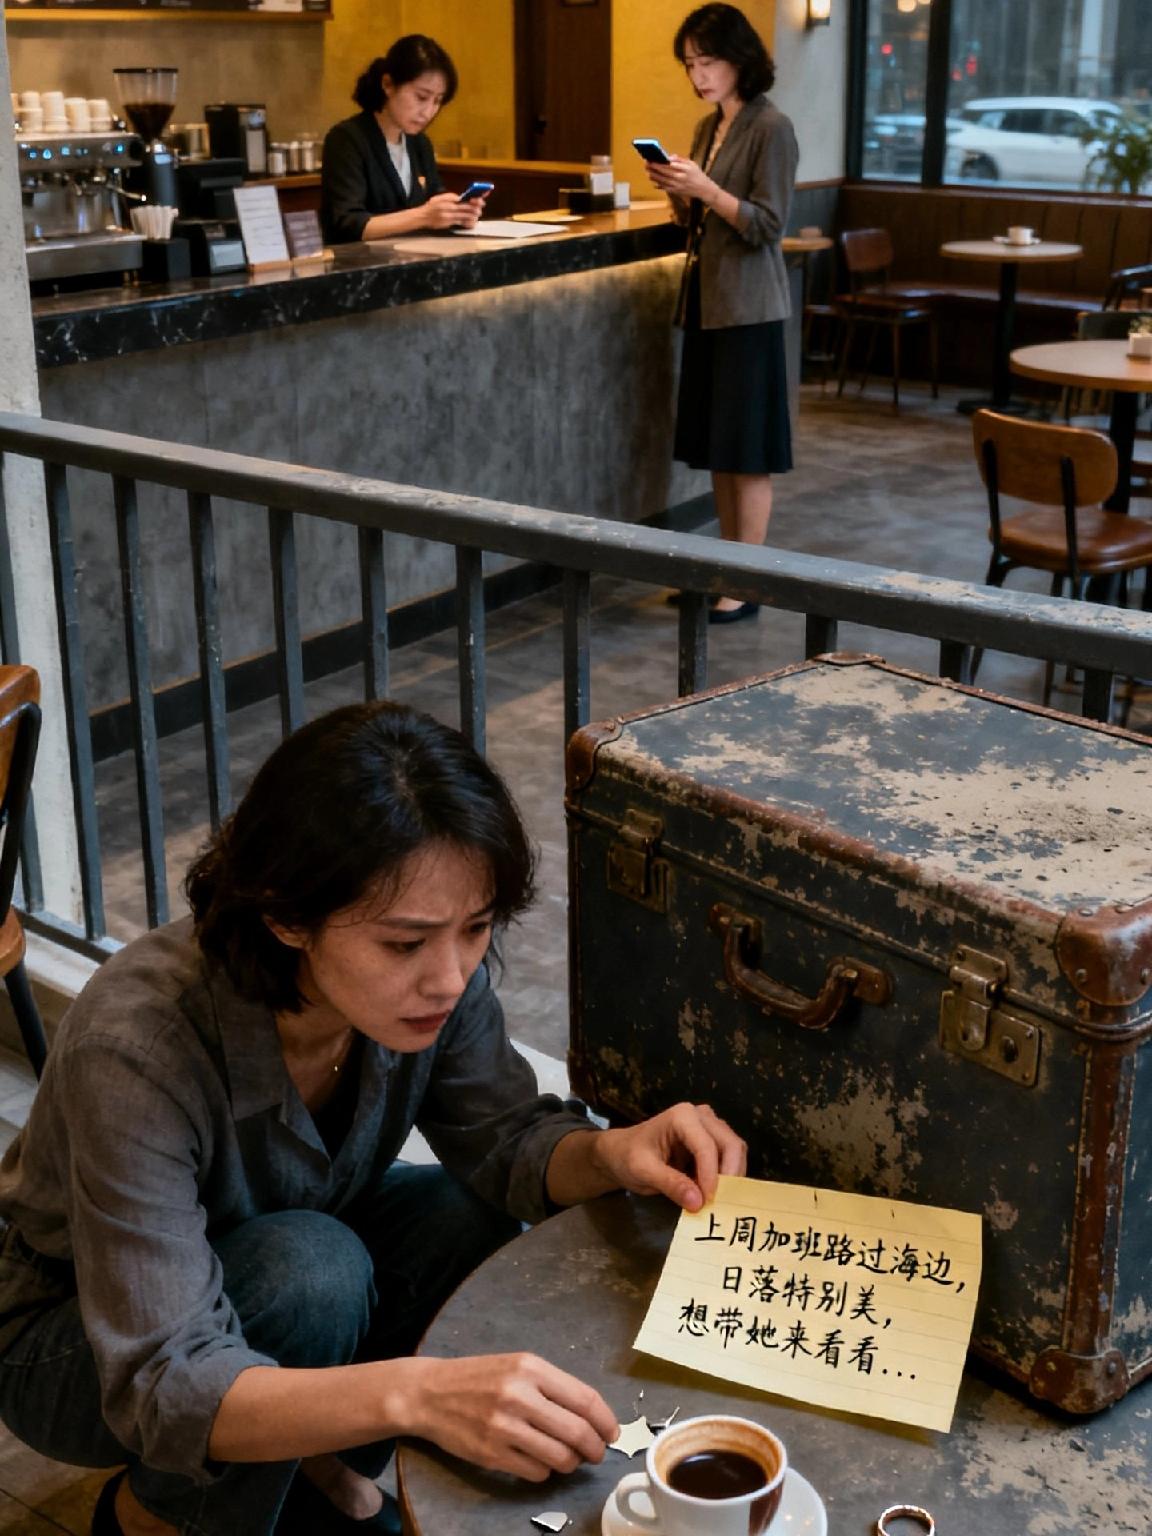 上周加班路过海边，
日落特别美，
想带她来看看...